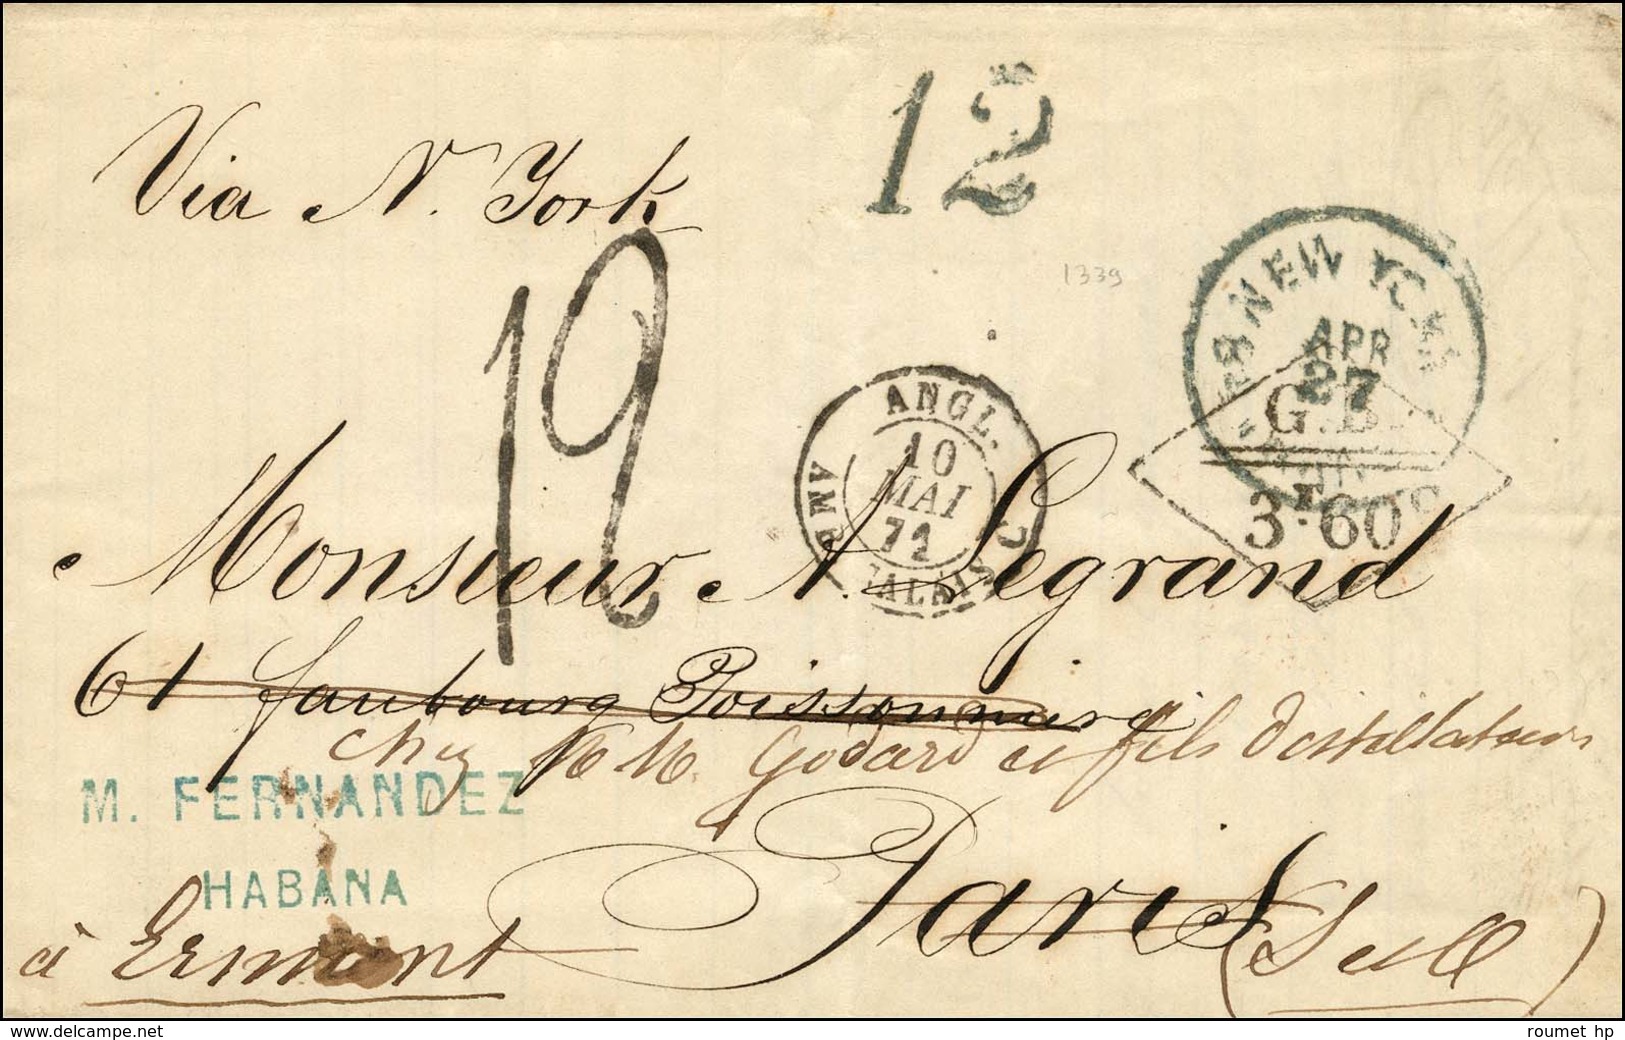 12
Via N. York
1339
NEW YORK
APR
27
G.B.
3F.60C
12
ANGL.
10
MAI
71
AMB. CALAIS C
Monsieur A. Legrand
61 faubourg Poissonniere
chez M M. Godard et fils Distillateurs
M. FERNANDEZ
HABANA
Paris
à Ermont
delcampe.net
roumet hp